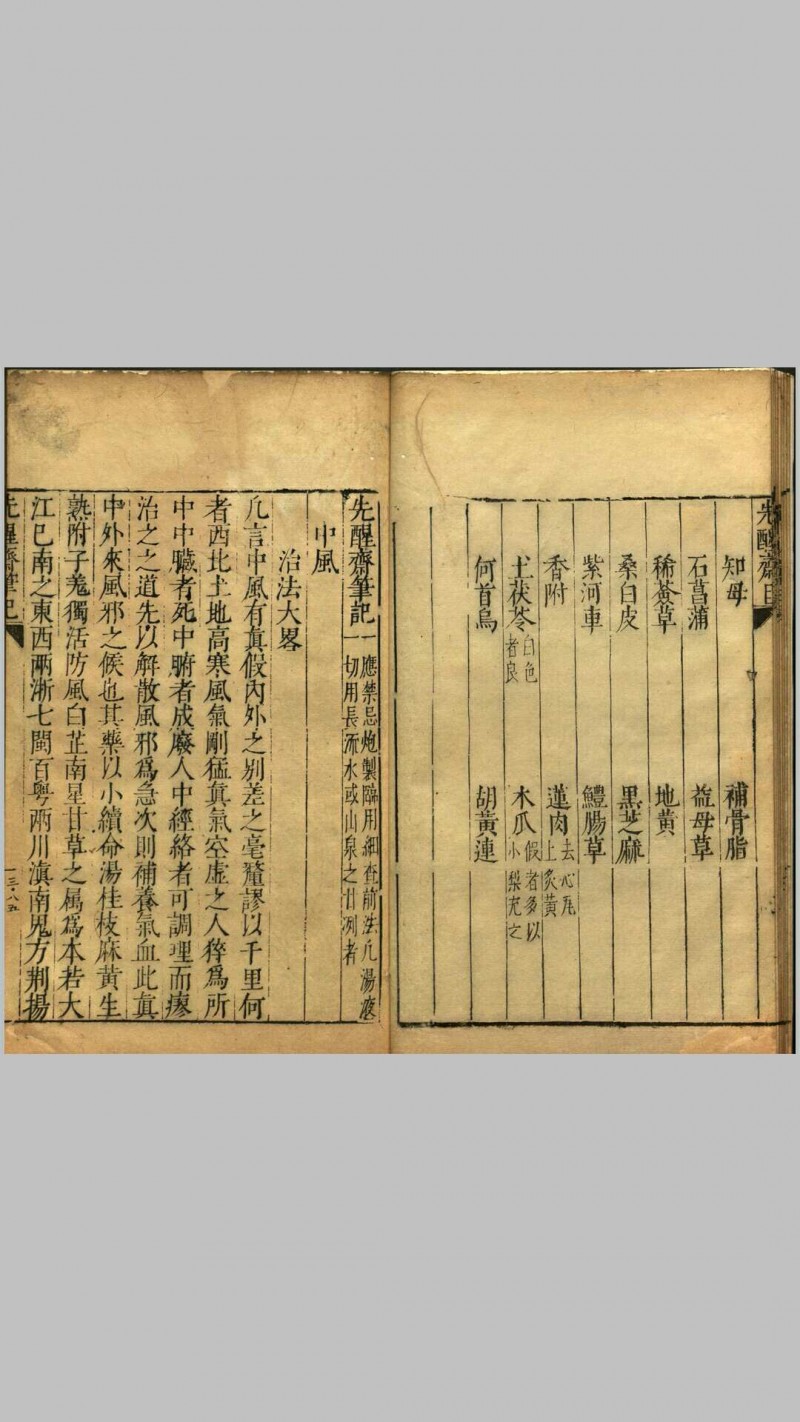 先醒齋目
知母　補骨脂
石菖蒲　益母草
稀薟草　地黃
桑白皮　黑芝麻
紫河車　鱧腸草
香附　蓮肉去心瓦上炙黃
土茯苓白色者良　木瓜假者多以小梨充之
何首烏　胡黃連
先醒齋筆記一應禁忌炮製臨用細查前法凡湯液一切用長流水或山泉之甘冽者
中風
治法大畧
凡言中風有真假內外之别差之毫釐謬以千里何
者西北土地高寒風氣剛猛真氣空虛之人猝爲所
中中臟者死中腑者成廢人中經絡者可調理而瘳
治之之道先以解散風邪爲急次則補養氣血此真
中外來風邪之候也其藥以小續命湯桂枝麻黃生
熟附子羗獨活防風白芷南星甘草之属爲本若大
江已南之東西兩浙七閩百粤兩川滇南鬼方荆揚
先醒齋筆記
一三・八五